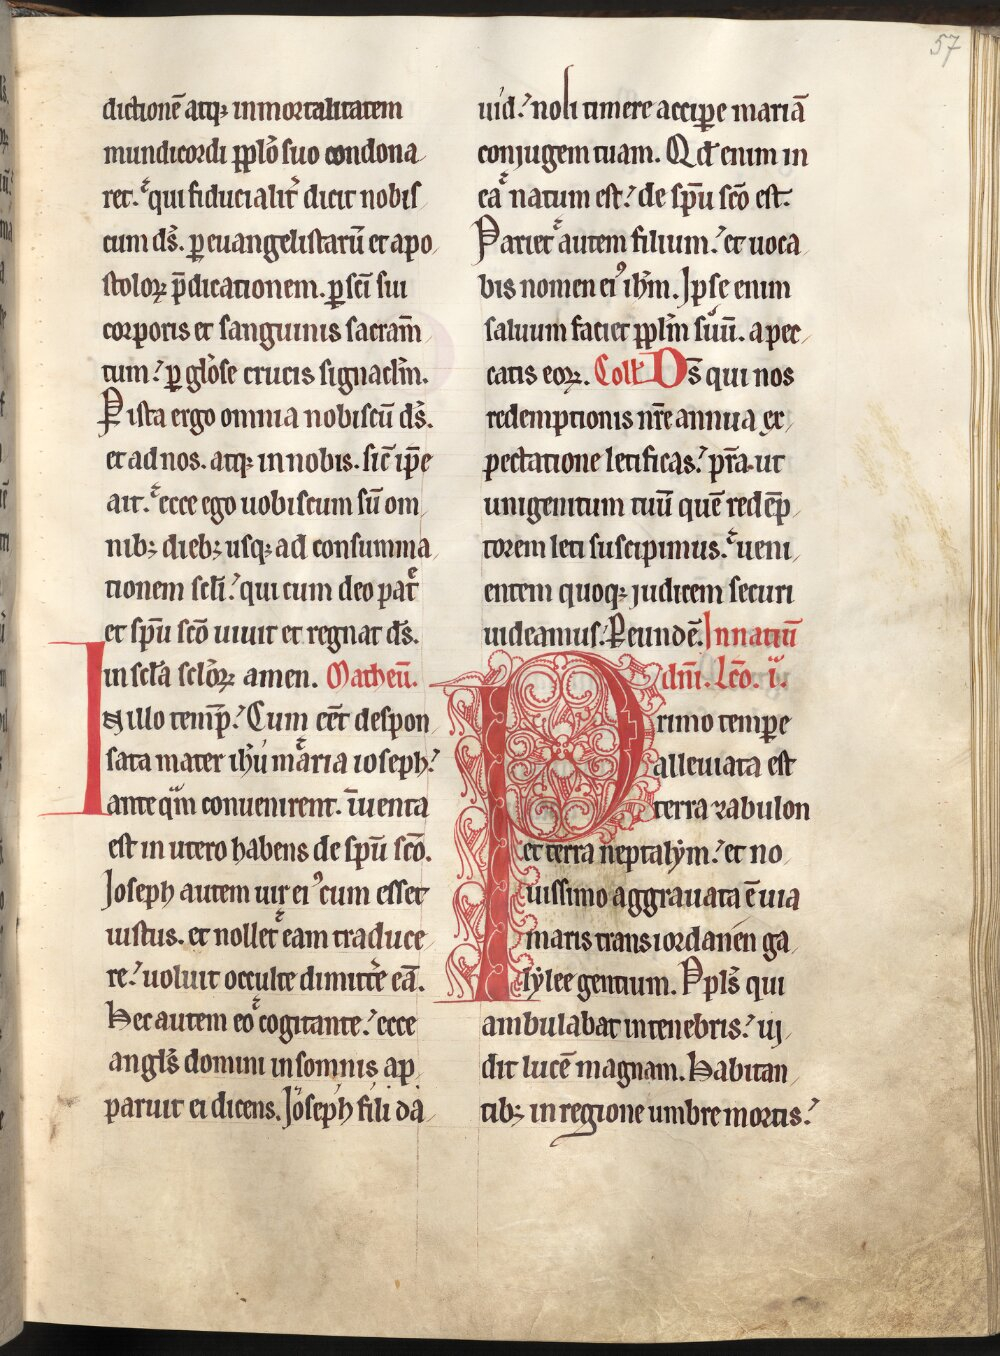 57
dictionē atq; inmortalitatem
mundicordi ꝓplo̅ suo condona
ret. qui fiducialit̅ dicit nobis
cum ds̅. ꝑ euangelistarū et apo
stoloꝝ p̅dicationem. ꝑ sci̅ sui
corporis et sanguinis sacram̅
tum? ꝑ glo̅se crucis signaclm̅.
Pista ergo omnia nobiscū ds̅.
et ad nos. atq; in nobis. sic̅ ip̅e
ait. ecce ego uobiscum su̅ om
nib; dieb; usq; ad consumma
tionem scl̅i? qui cum deo pat̅
et sp̅u sc̅o uiuit et regnat ds̅.
in scl̅a scl̅oꝝ amen. Matheū.
In illo temp̅? Cum ee̅t despon
sata mater ih̅u maria ioseph?
ante qm̅ conuenirent. īuenta
est in utero habens de sp̅u sc̅o.
Joseph autem uir ei᾿ cum esset
iustus. et nollet eam traduce
re? uoluit occulte dimitte̅ eā.
Hec autem eo cogitante? ecce
angls̅ domini in somnis ap
paruit ei dicens. Joseph fili da
uid? noli timere accipe mariā
conjugem tuam. Qd̅ enim in
ea natum est? de sp̅u sc̅o est.
Pariet autem filium? et uoca
bis nomen ei᾿ ih̅m. Jpse enim
saluum faciet ꝓplm̅ suū. a pec
catis eoꝝ. Coll̅ Ds̅ qui nos
redemptionis nr̅e annua ex
pectatione letificas? pr̅a. ut
unigenitum tuū quē redēp
torem leti suscipimus. ueni
entem quoq; judicem securi
uideamus. P eundē. In natiū
dn̅i. Lc̅o. i.
Primo tempe
alleuiata est
terra zabulon
et terra neptalym? et no
uissimo aggrauata ē uia
maris trans iordanen ga
lylee gentium. Ppls̅ qui
ambulabat in tenebris? uj
dit lucē magnam. Habitan
tib; in regione umbre mortis?